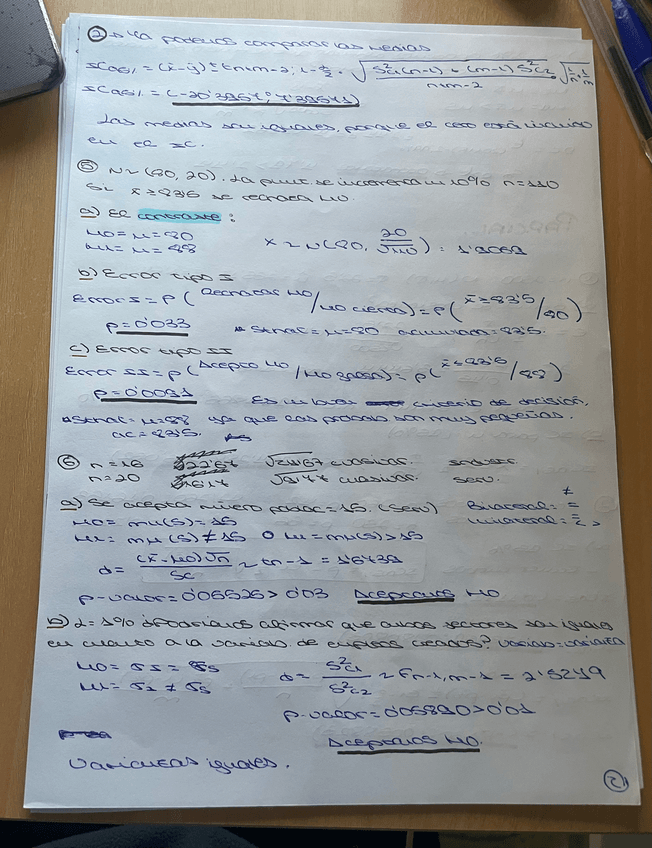 ② → Ya podemos comparar las medias
IC96% = (x̄-ȳ) ± tn+m-2; 1-α/2 · √(S²c1(n-1) + (m-1) S²c2 / n+m-2) · √(1/n + 1/m)
IC96% = (-20'3957; 7'39571)
Las medias son iguales, porque el cero está incluido
en el IC.
⑤ N~(80, 20). La punt. se incrementa un 10% n=110
Si x̄ ≥ 83'5 se rechaza H0.
a) El contraste:
H0 = μ = 80
H1 = μ = 88
x ~ N(80, 20/√110) = 1'9069
b) Error tipo I
Error I = P(Rechazar H0 / H0 cierta) = P(x̄ ≥ 83'5 / 80)
P = 0'033
Normal = μ = 80 acumulada = 83'5.
c) Error tipo II
Error II = P(Acepto H0 / H0 falsa) = P(x̄ < 83'5 / 88)
P = 0'0091
Es un buen criterio de decisión,
Normal = μ = 88 ya que las probab. son muy pequeñas.
ac = 83'5.
⑥ n = 16 cuasivar.
n = 20 cuasivar. serv.
a) Se acepta número = 15. (serv)
H0 = mu(S) = 15
H1 = mu(S) ≠ 15 O H1 = mu(S) > 15
Bilateral = ≠
Unilateral =
d = (x̄ - μ0)√n / Sc ~ tn-1 = 1'6739
p-valor = 0'05526 > 0'03 Aceptamos H0
b) α = 1% ¿Podríamos afirmar que ambos sectores son iguales
en cuanto a la variab. de empleos creados? variab = varianza
H0 = σI = σS
H1 = σI ≠ σS
d = S²c1 / S²c2 ~ Fn-1, m-1 = 2'5249
p-valor = 0'05890 > 0'01
Aceptamos H0.
Varianzas iguales.